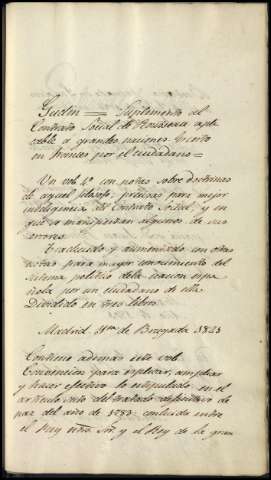 Gudin = Suplemento al
Contrato Social de Rousseau apli
cable a grandes naciones. Escrito
en frances por el ciudadano =
Un vol. 4º con notas sobre doctrinas
de aquel filosofo, precisas para mejor
inteligencia del Contrato Social, y en
que se manifiestan algunos de sus
errores.
Traducido y aumentado con otras
notas para mayor conocimiento del
sistema politico de la nacion espa
ñola por un ciudadano de ella
Dividido en tres libros
Madrid. de Brugada 1823
Contiene ademas este vol.
Convencion para esplicar, ampliar
y hacer efectivo lo estipulado en el
articulo sexto del tratado definitivo de
paz del año de 1783 concluida entre
el Rey ntro. Sr. y el Rey de la gran